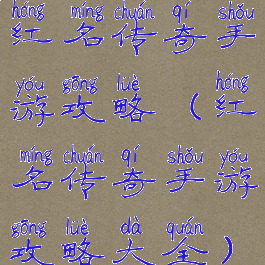 hóng míng chuán qí shǒu
红 名 传 奇 手
yóu gōng luè hóng
游 攻 略 （ 红
míng chuán qí shǒu yóu
名 传 奇 手 游
gōng luè dà quán
攻 略 大 全 ）